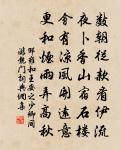 數朝從款看伊流
夜卜香山宿石樓
會有涼風開遠意
更和煙雨弄高秋
邵雍和王安之少卿同
游龍門詞典網集